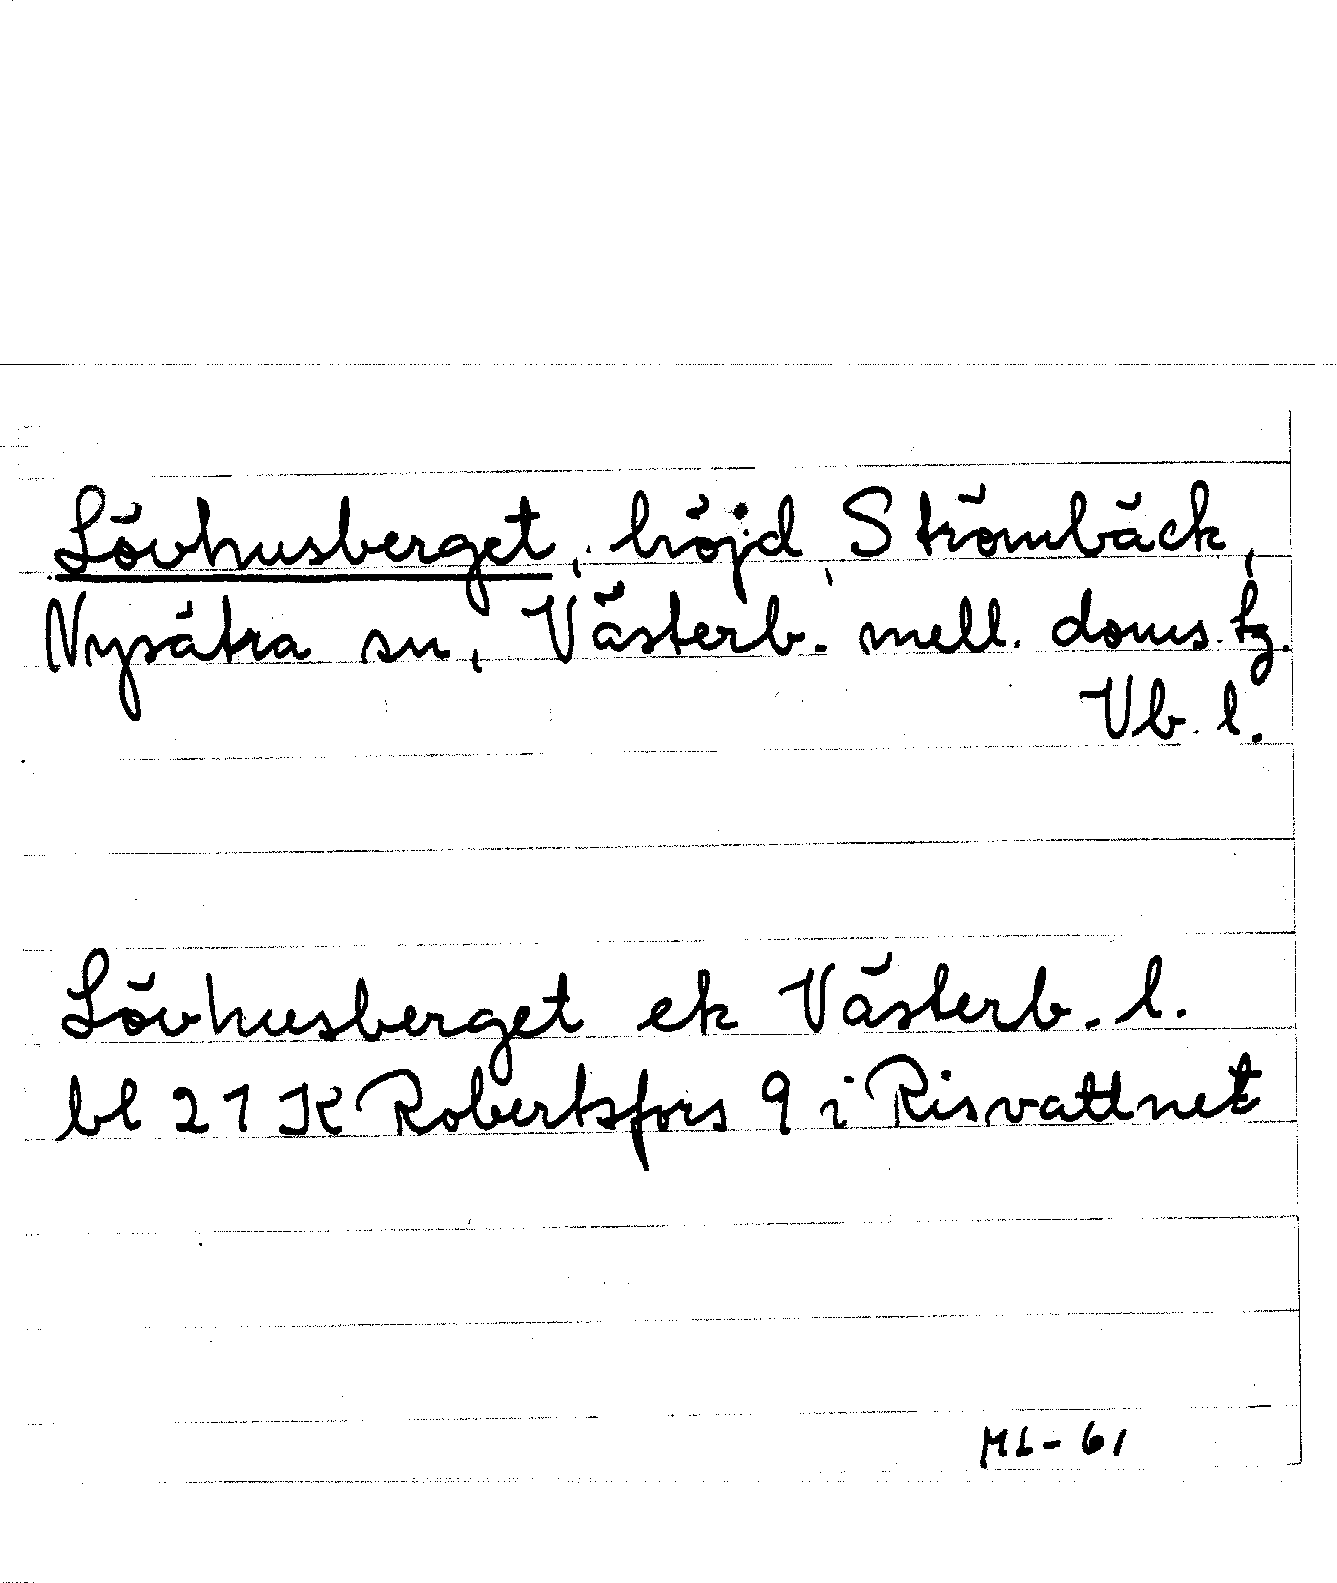 Lövhusberget, höjd, Strömbäck,
Nysätra sn, Västerb. mell. doms. tg.
Vb. l.
Lövhusberget ek Västerb. l.
bl 21 K Robertsfors 9 i Risvattnet
ML-61